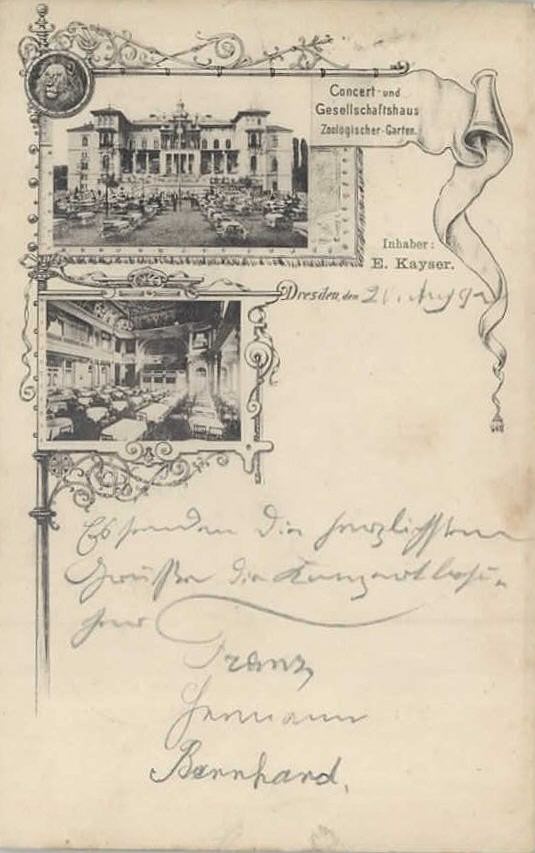 Concert-und
Gesellschaftshaus
Zoologischer-Garten.
Inhaber:
E. Kayser.
Dresden, den 21. Aug 9
Es senden die herzlichsten
Grüße die Konzertbesu-
cher
Franz
Hermann
Bernhard.